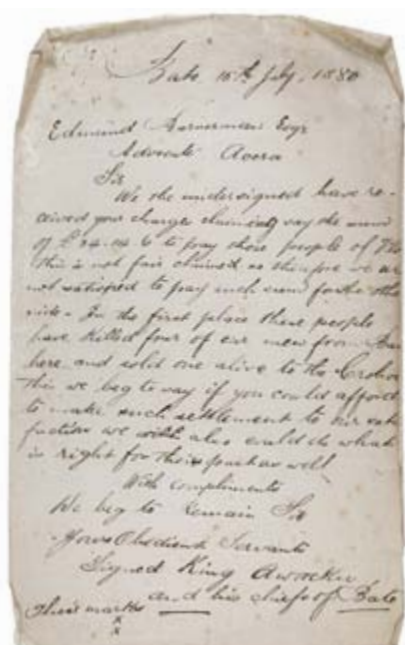 Bato 15th July, 1880
Edmund Bannerman Esqr
Advocate Accra
Sir
We the undersigned have re-
ceived your charges claiming say the sum
of £24.14.6 to pay those people of
this is not fair claimed as therefore we are
not satisfied to pay such sum for the other
side. In the first place these people
have killed four of our men from
here and sold one alive to the
this we beg to say if you could afford
to make such settlement to our satis
faction we will also could do what
is right for their part as well
With compliments
We beg to remain Sir
Yours Obedient Servants
Signed King
and his chiefs of Bato
Their marks
x
x